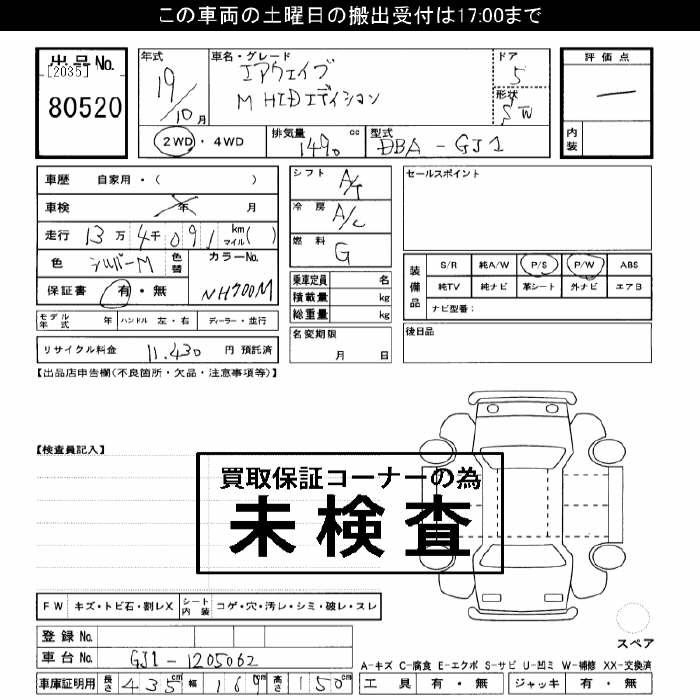 この車両の土曜日の搬出受付は17:00まで
出品No.
[2035]
80520
年式 19/10月
車名・グレード
エアウェイブ
M HIDエディション
ドア 5
形状 SW
評価点
—
内装
2WD・4WD
排気量 1490 cc
型式 DBA-GJ1
車歴 自家用・( )
車検 年 月
走行 13万4千091 km マイル( )
色 シルバーM 色替 カラーNo. NH700M
保証書 有・無
モデル年式 年 ハンドル 左・右 ディーラー・並行
リサイクル料金 11,430 円 預託済
シフト A/T
冷房 A/C
燃料 G
乗車定員 名
積載量 kg
総重量 kg
名変期限 月 日
セールスポイント
装備品
S/R 純A/W P/S P/W ABS
純TV 純ナビ 革シート 外ナビ エアB
ナビ型番：
後日品
【出品店申告欄(不良箇所・欠品・注意事項等)】
【検査員記入】
買取保証コーナーの為
未検査
FW キズ・トビ石・割レX シート内装 コゲ・穴・汚レ・シミ・破レ・スレ
スペア
登録No.
車台No. GJ1-1205062
A-キズ C-腐食 E-エクボ S-サビ U-凹ミ W-補修 XX-交換済
車庫証明用 長さ 435cm 幅 169cm 高さ 150cm
工具 有・無 ジャッキ 有・無